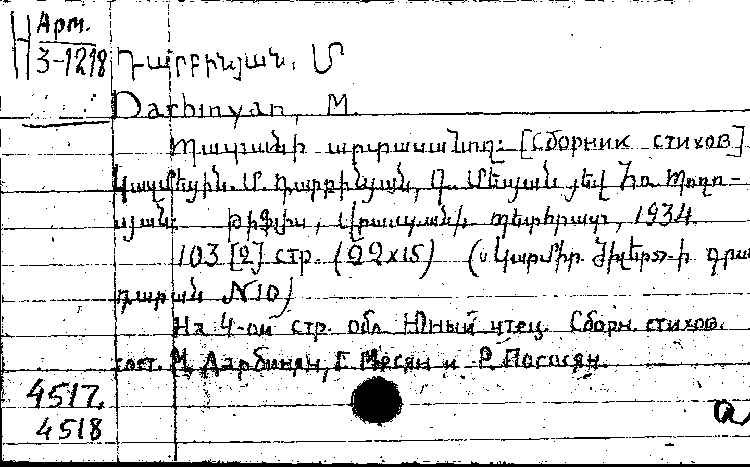 Арм.
3-1218
Դարբինյան, Մ
Darbinyan, M.
Պատանի արտասանող: [Сборник стихов]
Կազմեցին. Մ. Դարբինյան, Գ. Մեսյան յեվ Հռ. Պողո-
սյան: Թիֆլիս, Վրաստանի պետհրատ, 1934
103 [2] стр. (22x15) («Կարմիր ծիլեր»-ի գրա
դարան №10)
На 4-ой стр. обл. Юный чтец. Сборн. стихов.
сост. М. Дарбинян, Г. Месян и Р. Погосян.
4517,
4518
a